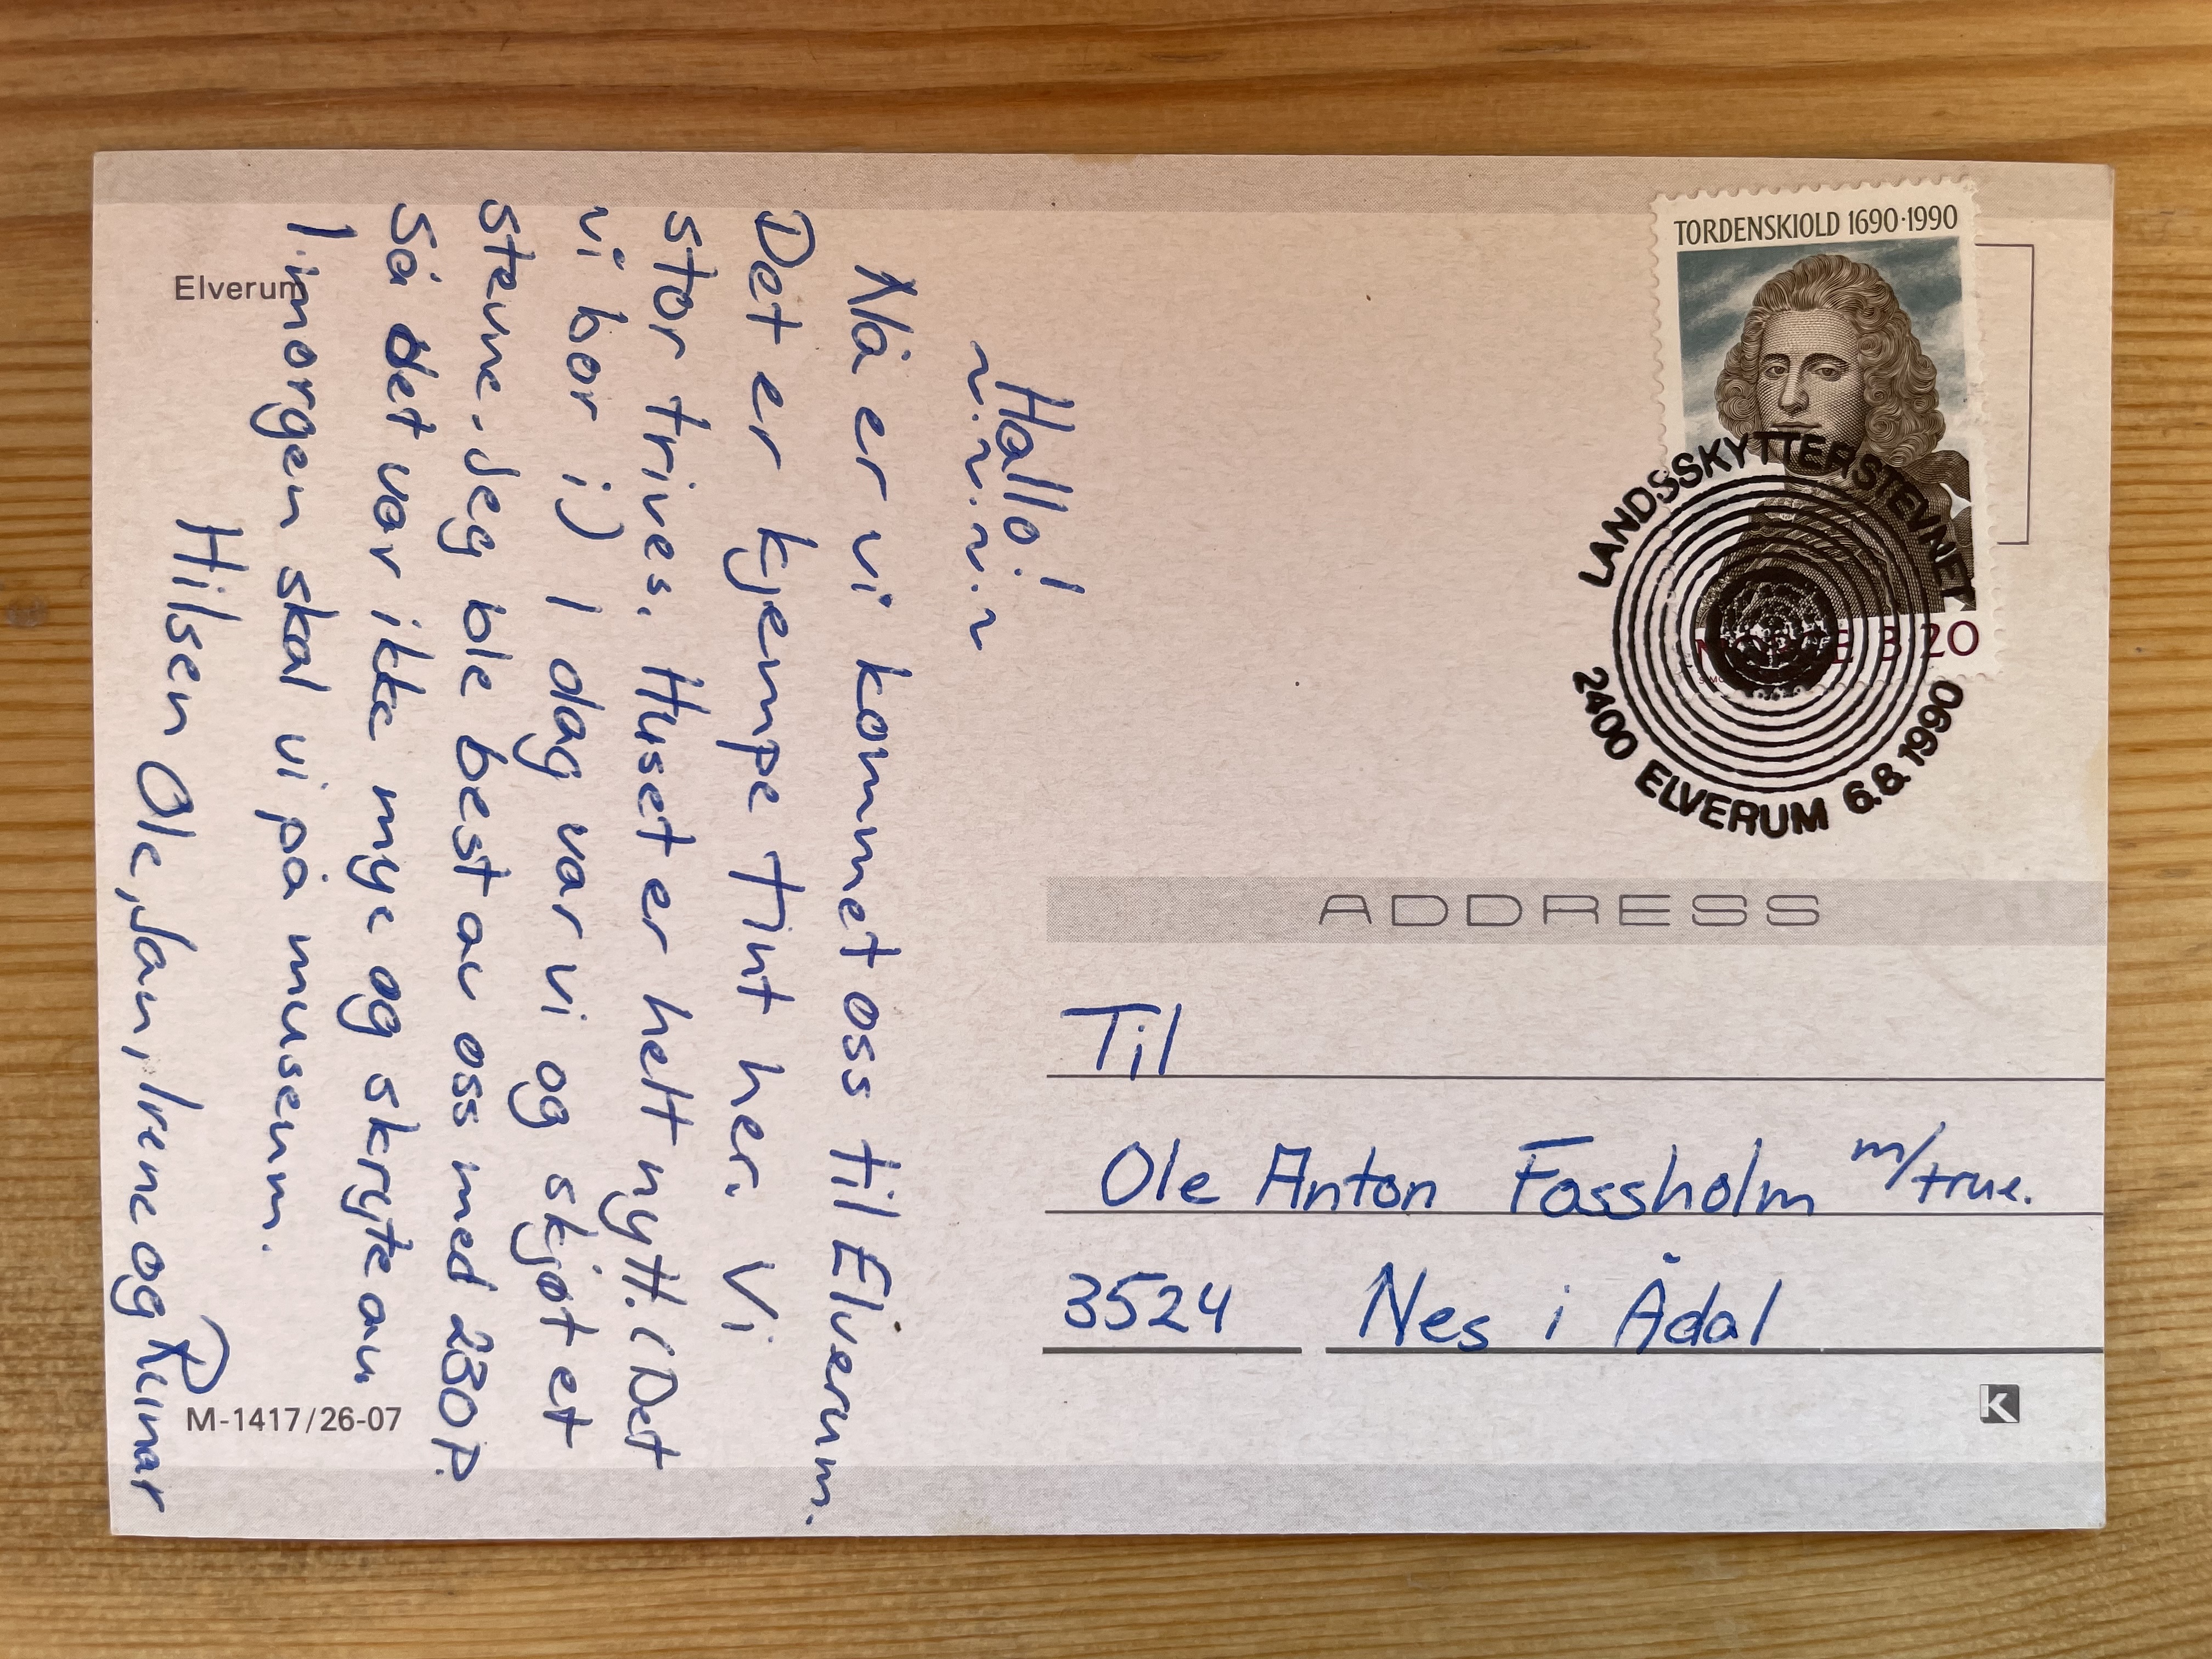 Elverum
Hallo!
Nå er vi kommet oss til Elverum.
Det er kjempe fint her. Vi
stortrives. Huset er helt nytt. (Det
vi bor i) I dag var vi og skjøt et
stevne. Jeg ble best av oss med 230 P.
Så det var ikke mye og skryte av.
I morgen skal vi på museum.
Hilsen Ole, Jan, Irene og Runar
M-1417/26-07
TORDENSKIOLD 1690·1990
NORGE 3 20
LANDSSKYTTERSTEVNET
2400 ELVERUM 6.8.1990
ADDRESS
Til
Ole Anton Fossholm m/frue.
3524 Nes i Ådal
K